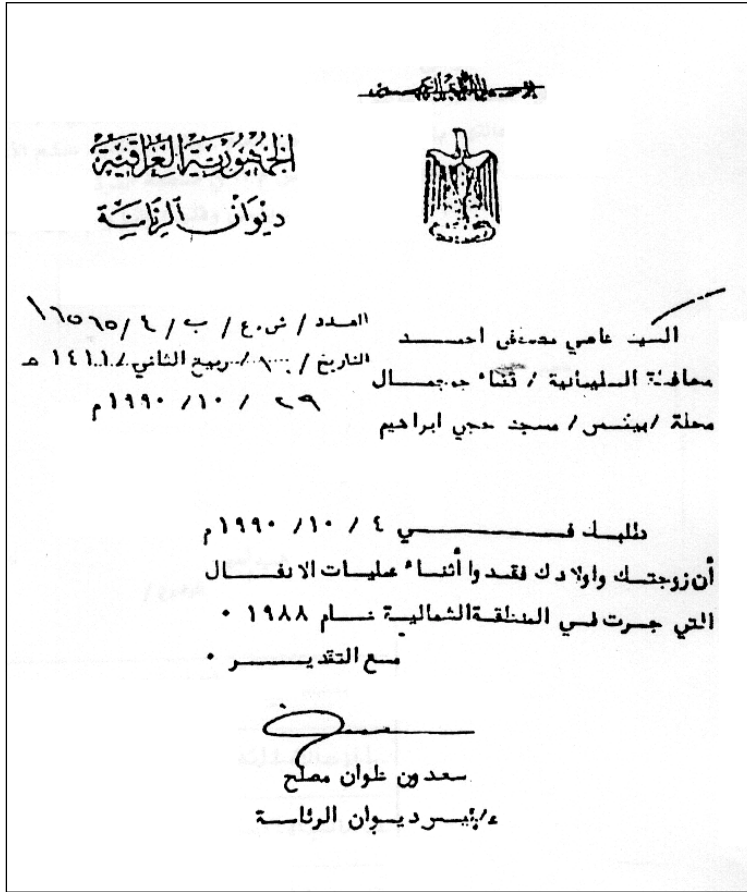 بسم الله الرحمن الرحيم
الجمهورية العراقية
ديوان الرئاسة
العدد / ش.ع / ب / ٤ / ١٦٥٦٥
التاريخ / ١٠ / ربيع الثاني / ١٤١١ هـ
٢٩ / ١٠ / ١٩٩٠م
السيد عاصي مصطفى احمد
محافظة السليمانية / قضاء جمجمال
محلة / بينس / مسجد حجي ابراهيم
طلبك في ٤ / ١٠ / ١٩٩٠م
أن زوجتك واولادك فقدوا أثناء عمليات الانفال
التي جرت في المنطقة الشمالية عام ١٩٨٨ ٠
مع التقدير ٠
سعدون علوان مصلح
ع/رئيس ديوان الرئاسة